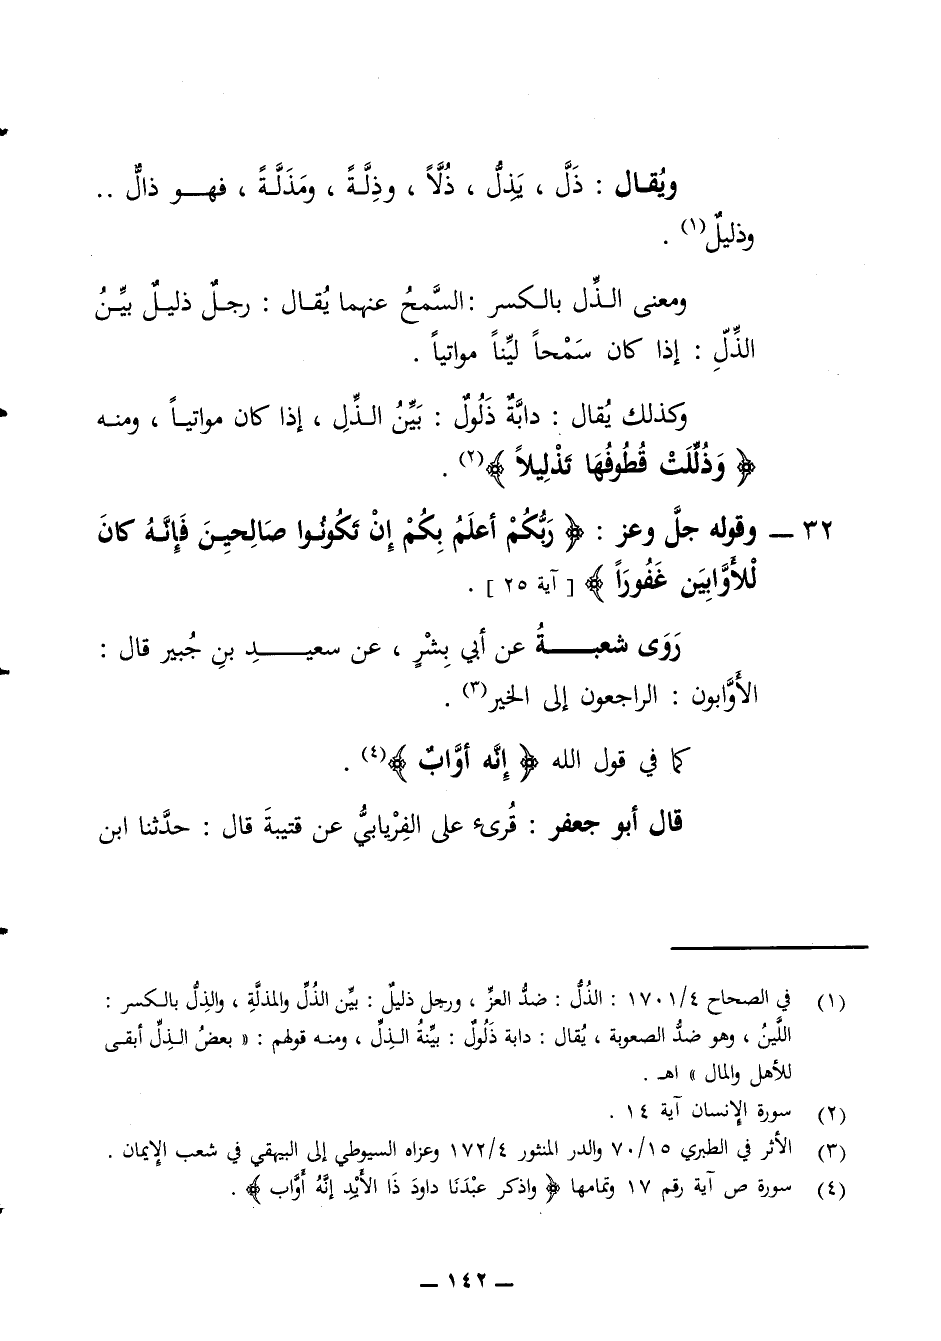 ويُقـال : ذَلَّ ، يَذِلُّ ، ذُلَّاً ، وذِلَّةً ، ومَذَلَّـةً ، فهـــو ذالٌّ ..
وذليلٌ(١) .
ومعنى الـذِّل بالـكسر :السَّمحُ عنهما يُقـال : رجـلٌ ذليـلٌ بيِّـنُ
الذِّلِّ : إذا كان سَمْحاً ليِّناً مواتياً .
وكذلك يُقال : دابَّةٌ ذَلُولٌ : بَيِّنُ الـذِّلِ ، إذا كان مواتيـاً ، ومنـه
﴿ وَذُلِّلَتْ قُطُوفُهَا تَذْلِيلاً ﴾(٢) .
٣٢ ــ وقوله جلَّ وعز : ﴿ رَبُّكُمْ أعلَمُ بِكُمْ إنْ تَكُونُـوا صَالِحيِـنَ فَإِنَّـهُ كانَ
لْلأَوَّابِيَن غَفُورَاً ﴾ [ آية ٢٥ ] .
رَوَى شعبــــةُ عن أبي بِشْرٍ ، عن سعيــــدِ بنِ جُبير قال :
الأَوَّابون : الراجعون إلى الخير(٣) .
كما في قول الله ﴿ إنَّه أوَّابٌ ﴾(٤) .
قال أبو جعفر : قُرىء على الفِرْيابيُّ عن قتيبةَ قال : حدَّثنا ابن
(١) في الصحاح ١٧٠١/٤ : الذُلُّ : ضدُّ العزِّ ، ورجل ذليلٌ : بيِّن الذُلِّ والمذلَّةِ ، والذِلُّ بالـكسر :
اللَّينُ ، وهو ضدُّ الصعوبة ، يُقال : دابة ذَلُولٌ : بيِّنةُ الـذِلِّ ، ومنـه قولهم : « بعضُ الـذِلِّ أبقـى
للأهل والمال » اهـ .
(٢) سورة الإنسان آية ١٤ .
(٣) الأثر في الطبري ٧٠/١٥ والدر المنثور ١٧٢/٤ وعزاه السيوطي إلى البيهقي في شعب الإيمان .
(٤) سورة ص آية رقم ١٧ وتمامها ﴿ واذكر عبْدَنَا داودَ ذَا الأَيْدِ إنَّهُ أَوَّاب ﴾ .
ــ ١٤٢ ــ